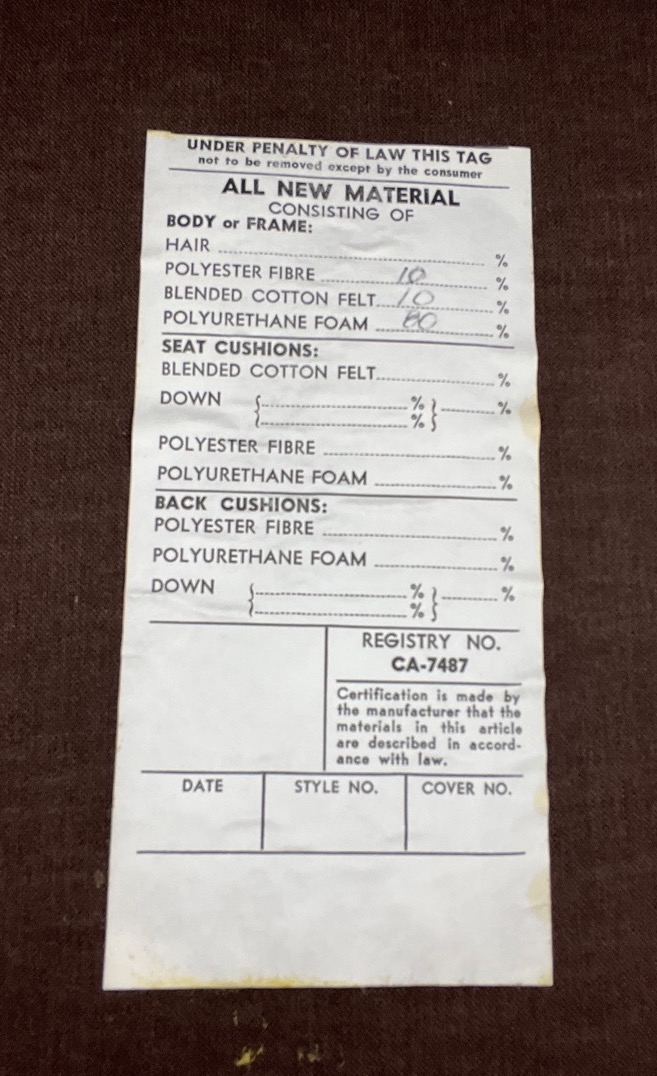 UNDER PENALTY OF LAW THIS TAG
not to be removed except by the consumer
ALL NEW MATERIAL
CONSISTING OF
BODY or FRAME:
HAIR %
POLYESTER FIBRE 10 %
BLENDED COTTON FELT 10 %
POLYURETHANE FOAM 80 %
SEAT CUSHIONS:
BLENDED COTTON FELT %
DOWN { % } %
{ % }
POLYESTER FIBRE %
POLYURETHANE FOAM %
BACK CUSHIONS:
POLYESTER FIBRE %
POLYURETHANE FOAM %
DOWN { % } %
{ % }
REGISTRY NO.
CA-7487
Certification is made by
the manufacturer that the
materials in this article
are described in accord-
ance with law.
DATE STYLE NO. COVER NO.